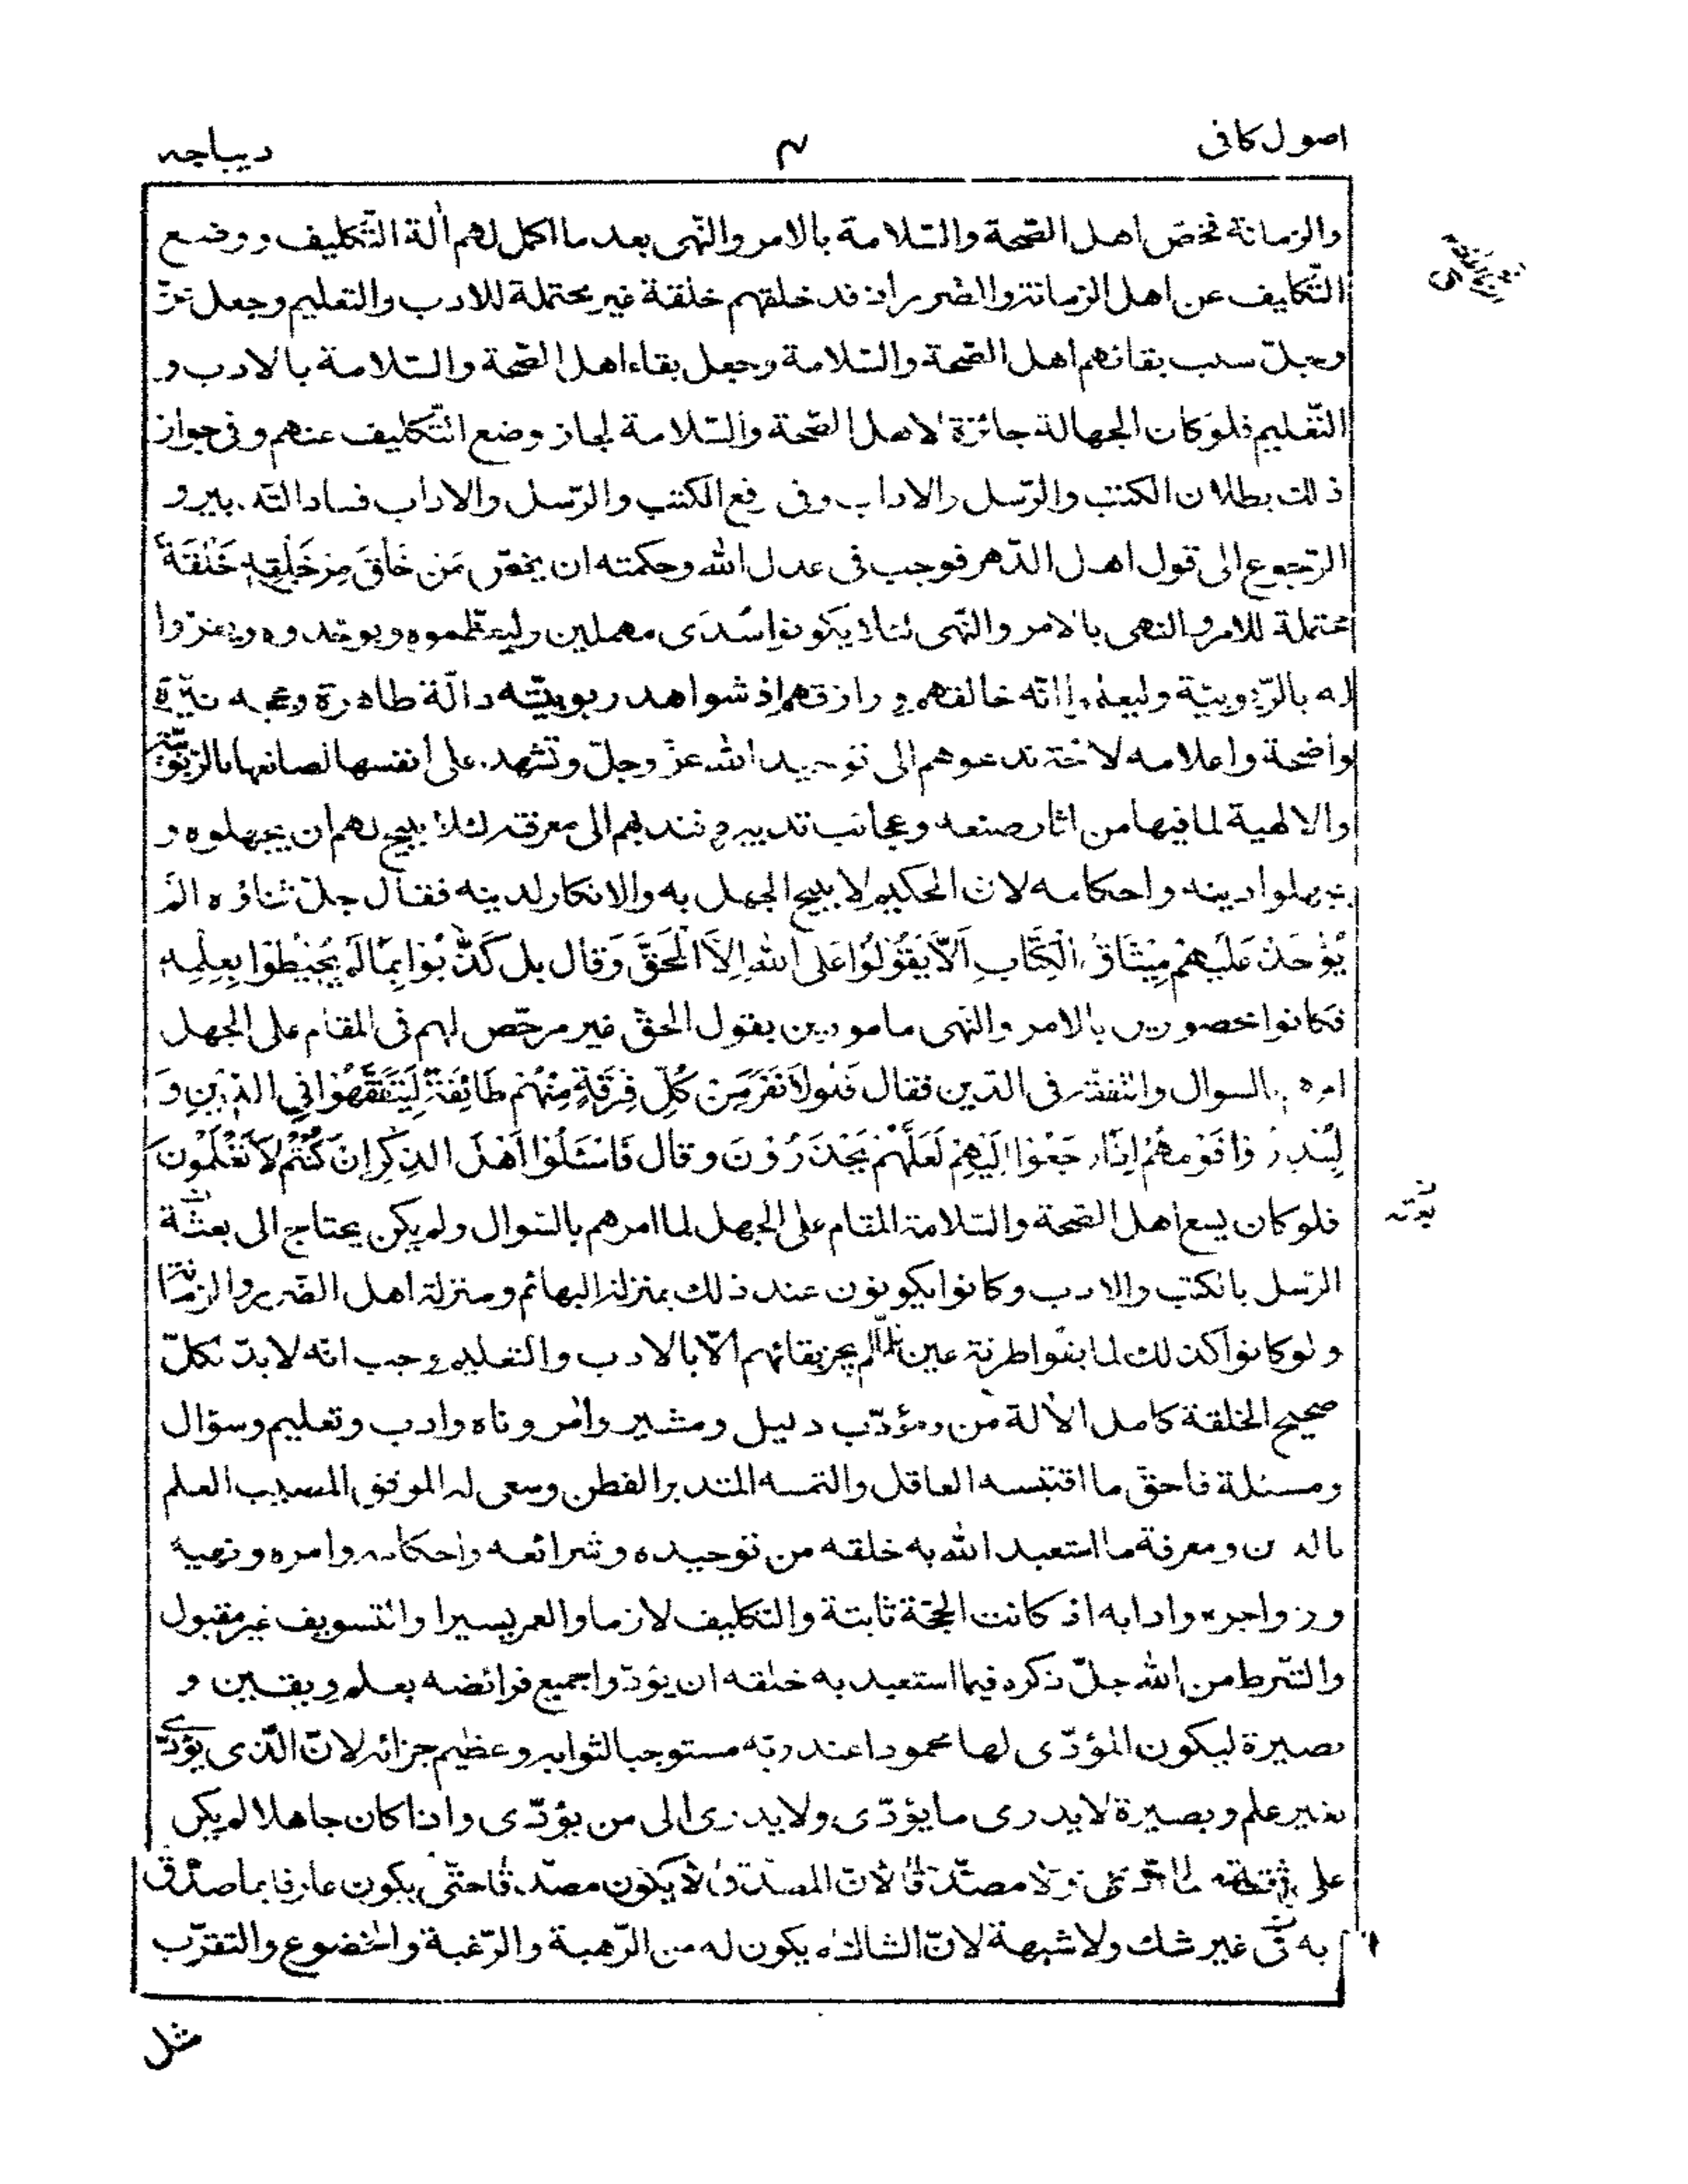 اصول كافى
۴
ديباجه
والزمانة فخصّ اهل الصّحة والسّلامة بالامر والنّهى بعد ما اكمل لهم ألة التّكليف ووضع
التّكليف عن اهل الزمانة والضرر اذ قد خلقهم خلقة غير محتملة للادب والتعليم وجعل عزّ
وجلّ سبب بقائهم اهل الصّحة والسّلامة وجعل بقاء اهل الصّحة والسّلامة بالادب و
التّعليم فلو كان الجهالة جائزة لاهل الصّحة والسّلامة لجاز وضع التّكليف عنهم وفى جواز
ذلك بطلان الكتب والرّسل والاداب وفى رفع الكتب والرّسل والاداب فساد التدبير و
الرّجوع الى قول اهل الدّهر فوجب فى عدل الله وحكمته ان يخصّ مَن خَلَقَ مِن خَلْقِه خَلْقَةً
محتملة للامر والنهى بالامر والنّهى لئلا يكونوا سُدًى مهملين وليعظّموه ويوحّدوه ويقرّوا
له بالرّبوبيّة وليعلموا انّه خالقهم و رازقهم إذ شواهد ربوبيّته دالّة ظاهرة وحججه نيّرة
واضحة واعلامه لائحة تدعوهم الى توحيد الله عزّ وجلّ وتشهد على أنفسها لصانعها بالرّبوبيّة
والالهية لما فيها من اثار صنعه وعجائب تدبيره فندبهم الى معرفته لئلا يبيح لهم ان يجهلوه و
يجهلوا دينه واحكامه لان الحكيم لا يبيح الجهل به والانكار لدينه فقال جلّ ثناؤه الَم
يُؤْخَذْ عَلَيْهِمْ مِيْثَاقُ الْكِتَابِ اَلاَّ يَقُوْلُوْا عَلَى اللهِ اِلاَّ الْحَقَّ وَقال بل كَذَّبُوْا بِمَا لَمْ يُحِيْطُوْا بِعِلْمِه
فكانوا محصورين بالامر والنهى مامورين بقول الحقّ غير مرخّص لهم فى المقام على الجهل
امرهم بالسوال والتفقّه فى الدّين فقال فَلَوْلاَ نَفَرَ مِنْ كُلِّ فِرْقَةٍ مِنْهُمْ طَائِفَةٌ لِيَتَفَقَّهُوْا فِي الدِّيْنِ وَ
لِيُنْذِرُوْا قَوْمَهُمْ اِذَا رَجَعُوْا اِلَيْهِمْ لَعَلَّهُمْ يَحْذَرُوْنَ وقال فَاسْئَلُوْا اَهْلَ الذِّكْرِ اِنْ كُنْتُمْ لاَ تَعْلَمُوْنَ
فلو كان يسع اهل الصّحة والسّلامة المقام على الجهل لما امرهم بالسّوال ولم يكن يحتاج الى بعثة
الرّسل بالكتب والادب وكانوا يكونون عند ذلك بمنزلة البهائم ومنزلة اهل الضّرر والزمانة
ولو كانوا كذلك لما بقوا طرفة عين فلمّا لم يجز بقائهم الّا بالادب والتعليم وجب انّه لا بدّ لكلّ
صحيح الخلقة كامل الألة من مؤدّب دليل ومشير وأمر وناه وادب وتعليم وسؤال
ومسئلة فأحقّ ما اقتبسه العاقل والتمسه المتدبر الفطن وسعى له الموفق المصيب العلم
بالدين ومعرفة ما استعبد الله به خلقه من توحيده وشرائعه واحكامه وامره ونهيه
وزواجره وادابه اذ كانت الحجّة ثابتة والتكليف لازما والعمر يسيرا والتسويف غير مقبول
والشّرط من الله جلّ ذكره فيما استعبد به خلقه ان يؤدّوا جميع فرائضه بعلم ويقين و
بصيرة ليكون المؤدّى لها محمودا عند ربّه مستوجبا لثوابه وعظيم جزائه لانّ الّذى يؤدّى
بغير علم وبصيرة لا يدرى ما يؤدّى ولا يدرى الى من يؤدّى واذا كان جاهلا لم يكن
على ثقة مما ادّى ولا مصدّقا لانّ المصدّق لا يكون مصدّقا حتّى يكون عارفا بما صدّق
به من غير شك ولا شبهة لانّ الشاك لا يكون له من الرّهبة والرّغبة والخضوع والتقرّب
مثل